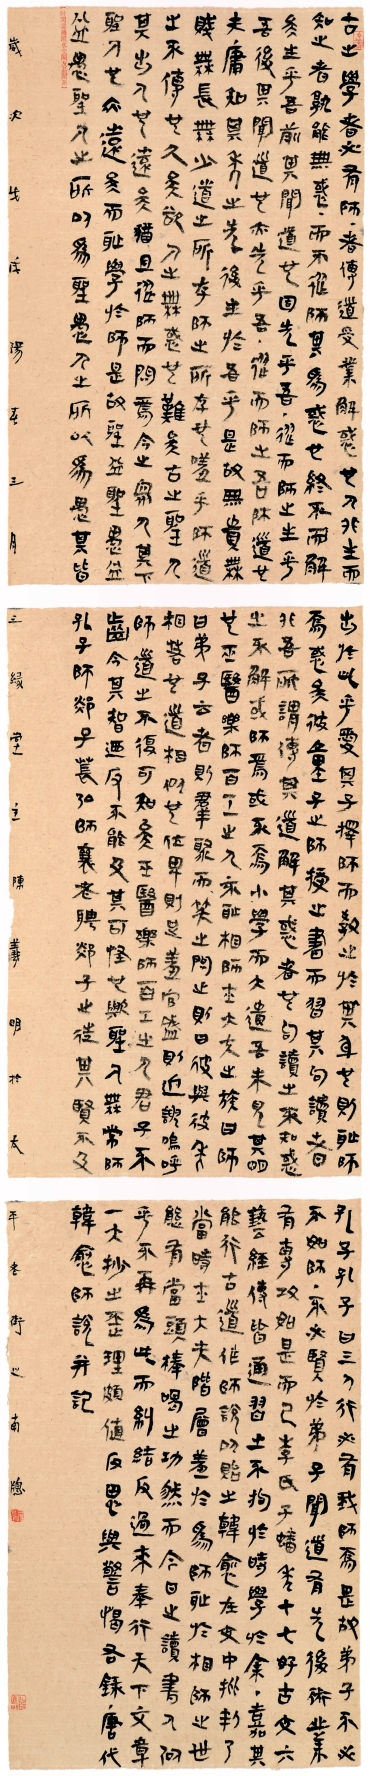 古之學者必有師、者傳道受業解惑也人非生而
知之者孰能無惑、而不從師其為惑也終不而解
矣生乎吾前其聞道也固先乎吾、從而師之生乎
吾後其聞道也亦先乎吾、從而師之吾師道也
夫庸知其年之先後生於吾乎是故無貴無
賤無長無少道之所存師之所存也嗟乎師道
之不傳也久矣欲人之無惑也難矣古之聖人
其出人也遠矣猶且從師而問焉今之眾人其下
聖人也亦遠矣而恥學於師是故聖益聖愚益
益愚聖人之所以為聖愚人之所以為愚其皆
歲次戊戌陽春三月
出於此乎愛其子擇師而教之於其身也則恥師
焉惑矣彼童子之師授之書而習其句讀者也
非吾所謂傳其道解其惑者也句讀之不知惑
之不解或師焉或不焉小學而大遺吾未見其明
也巫醫樂師百工之人不恥相師士大夫之族曰師
曰弟子云者則群聚而笑之問之則曰彼與彼年
相若也道相似也位卑則足羞官盛則近諛嗚呼
師道之不復可知矣巫醫樂師百工之人君子不
齒今其智迺反不能及其可怪也歟聖人無常師
孔子師郯子萇弘師襄老聃郯子之徒其賢不及
三緣堂主陳義明於太
孔子孔子曰三人行必有我師焉是故弟子不必
不如師、不必賢於弟子聞道有先後術業
有專攻如是而已李氏子蟠年十七好古文六
藝經傳皆通習之不拘於時學於余、嘉其
能行古道作師說以貽之韓愈在文中批判了
當時士大夫階層羞於為師恥於相師之世
態有當頭棒喝之功然而今日之讀書人何
乎不再為此而糾結反過來奉行天下文章
一大抄之歪理頗值反思與警惕吾錄唐代
韓愈師說并記
平老街之南窗